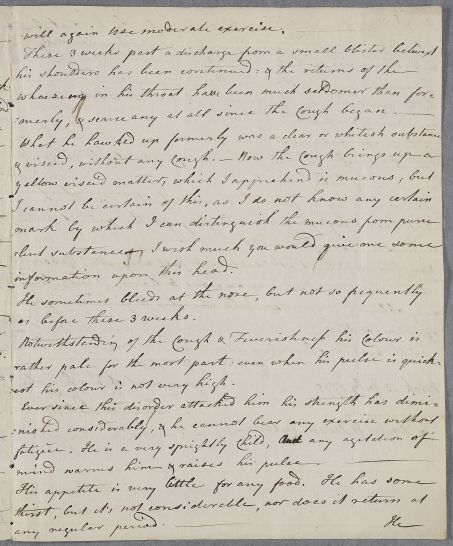 will again use moderate exercise.
These 3 weeks past a discharge from a small blister betwixt
his shoulders has been continued: & the returns of the
wheesing in his throat have been much seldomer than for=
=merly, & scarce any at all since the Cough began. —
What he hawked up formerly was a clear or whitish substance
& viscid, without any Cough. — Now the Cough brings up a
yellow viscid matter, which I apprehend is mucous; but
I cannot be certain of this, as I do not know any certain
mark by which I can distinguish the mucous from puru=
=lent substances, I wish much you would give me some
information upon this head.
He sometimes bleeds at the nose, but not so frequently
as before these 3 weeks.
Notwithstanding of the Cough & Feverishness his Colour is
rather pale for the most part: even when his pulse is quick=
=est his colour is not very high.
Ever since this disorder attacked him his strength has dimi=
=nished considerably, & he cannot bear any exercise without
fatigue. He is a very sprightly Child, and any agitation of
mind warms him & raises his pulse.
His appetite is very little for any food. He has some
thirst, but it's not considerable, nor does it return at
any regular period.
He